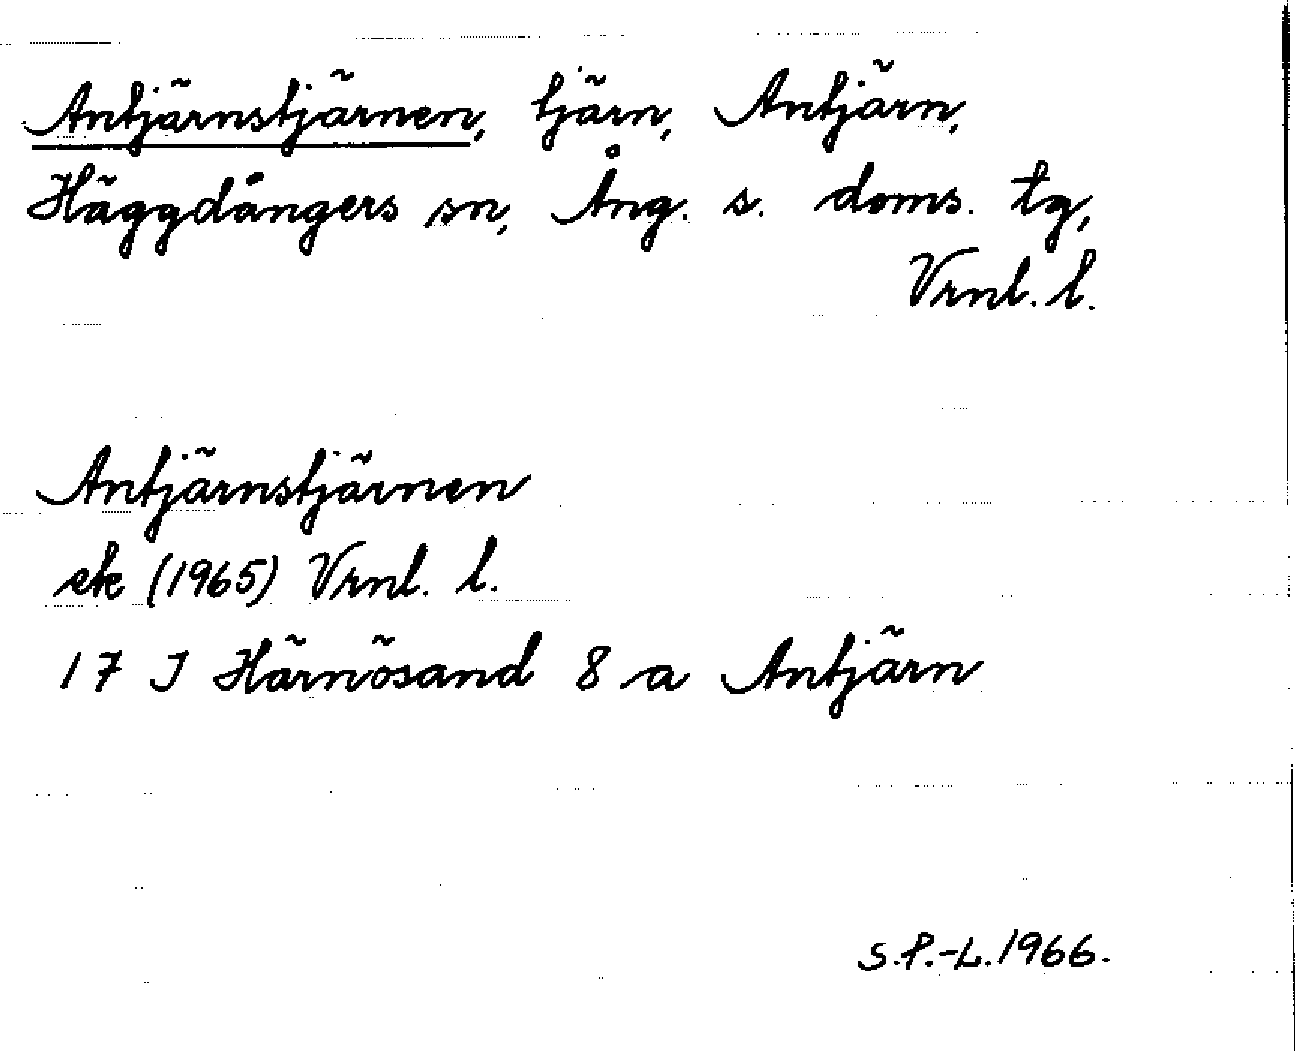 Antjärnstjärnen, tjärn, Antjärn,
Häggdångers sn, Ång. s. doms. tg,
Vrnl. l.
Antjärnstjärnen
ek (1965) Vrnl. l.
17 J Härnösand 8 a Antjärn
S.P.-L. 1966.